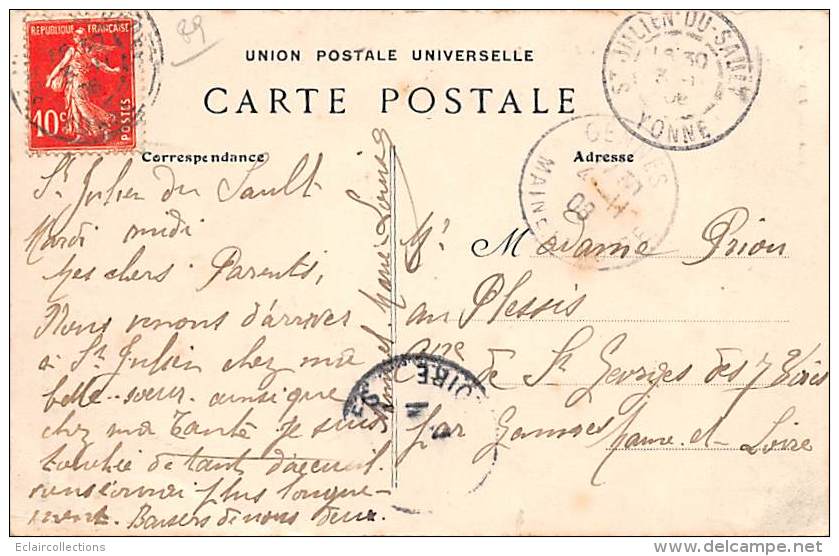 89
REPUBLIQUE FRANÇAISE
10c POSTES
UNION POSTALE UNIVERSELLE
CARTE POSTALE
ST JULIEN-DU-SAULT
YONNE
Correspondance
Adresse
GENNES
MAINE
08
St Julien du Sault
Mardi midi
Mes chers Parents,
Nous venons d'arriver
à St Julien chez ma
belle-sœur ainsi que
chez ma Tante je suis
touchée de tant d'acceuil.
plus longue-
ment. Baisers de nous deux.
et Marie Louise
Mr Madame Priou
au Plessis
Cne de St Georges des 7 Voies
par Gennes
Maine-et-Loire
LOIRE
Eclaircollections
delcampe.net